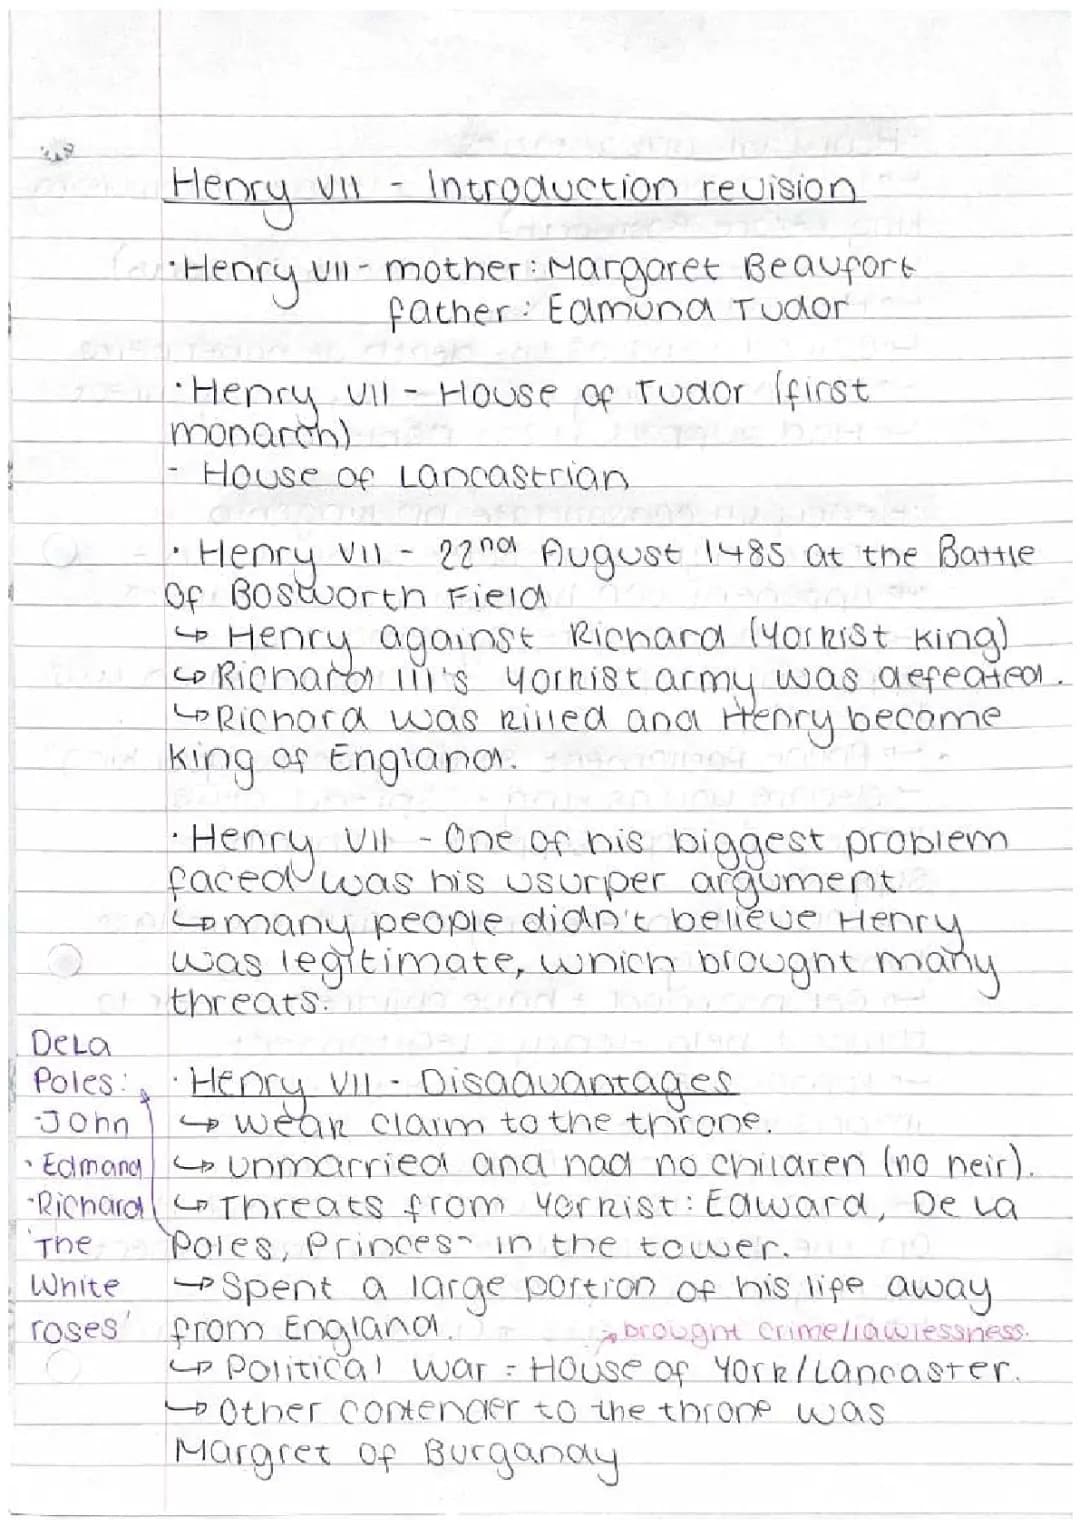 Henry VII - Introduction revision
·Henry VII - mother: Margaret Beaufort
father: Edmund Tudor
·Henry VII - House of Tudor (first
monarch)
- House of Lancastrian
·Henry VII - 22nd August 1485 at the Battle
Of Bosworth Field
↳ Henry against Richard (Yorkist king)
↳ Richard III's Yorkist army was defeated.
↳ Richard was killed and Henry became
king of England.
·Henry VII - One of his biggest problem
faced was his usurper argument
↳ many people didn't believe Henry
was legitimate, which brought many
threats.
DeLa
Poles:
·John
·Edmand
·Richard
'The
White
roses'
·Henry VII - Disadvantages
↳ weak claim to the throne.
↳ unmarried and had no children (no heir).
↳ Threats from Yorkist: Edward, De La
Poles, Princes in the tower.
→ Spent a large portion of his life away
from England.
→ brought crime/lawlessness.
↳ Political war = House of York/Lancaster.
→ Other contender to the throne was
Margret of Burgandy